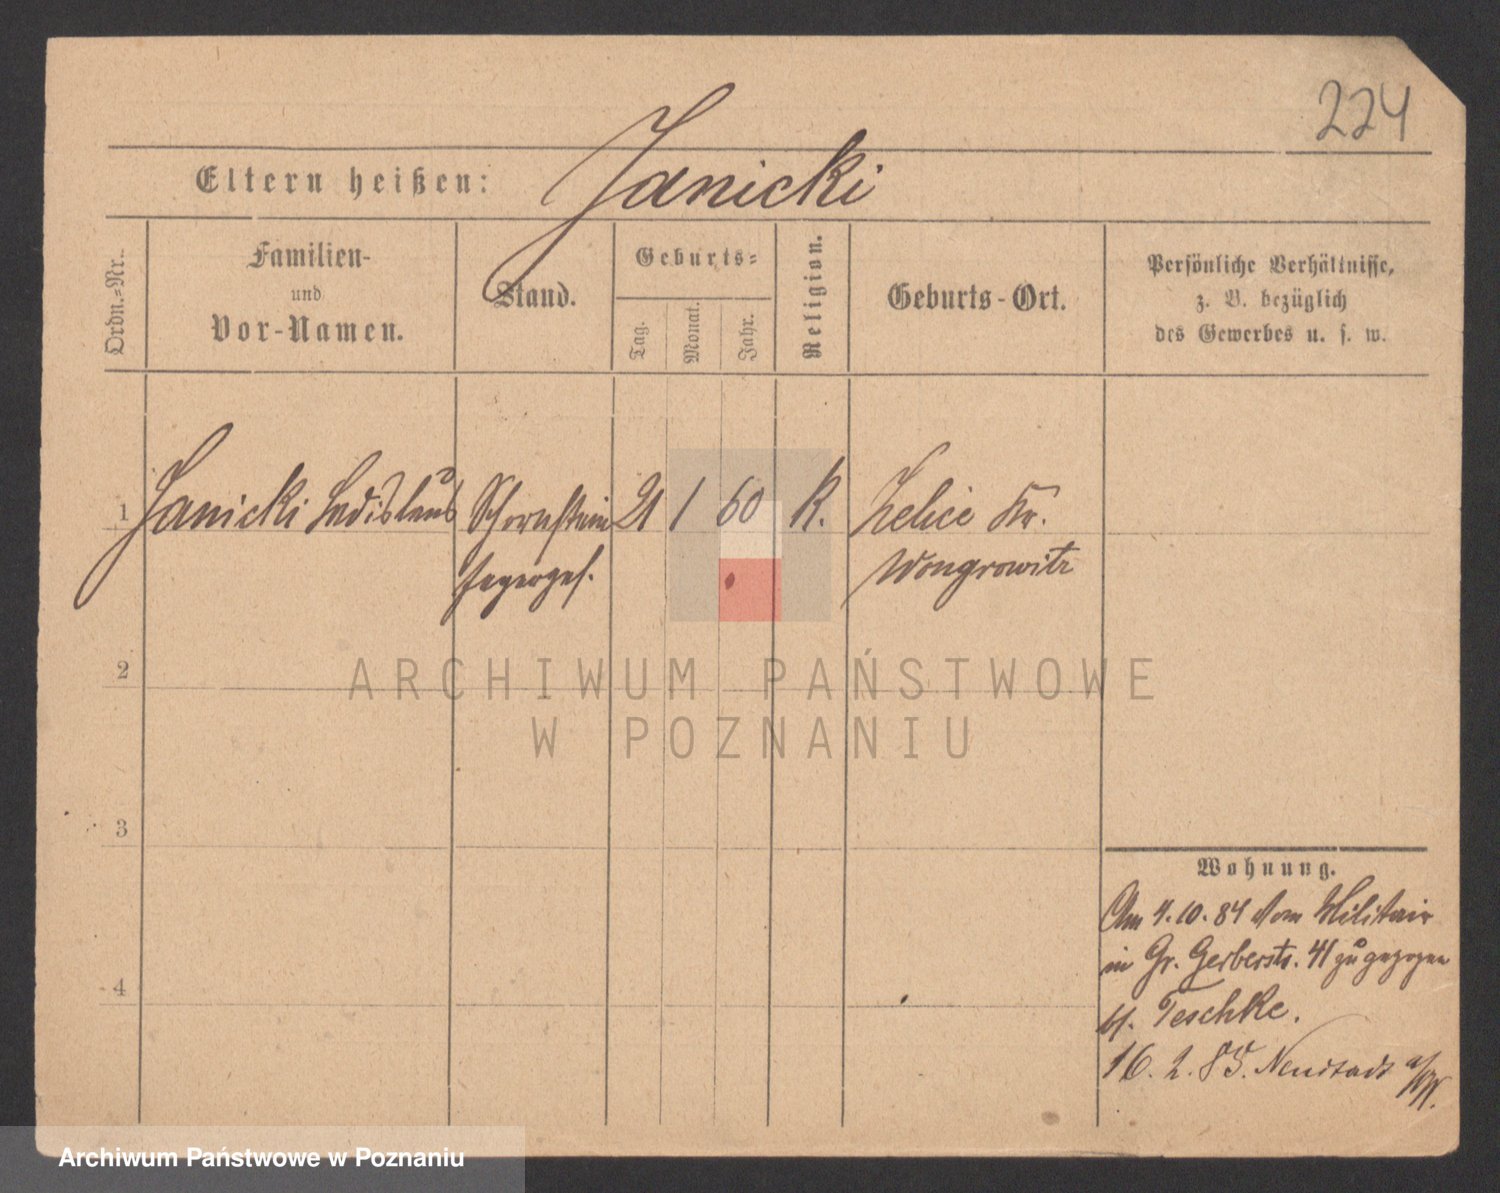 224
Eltern heißen: Janicki
Ordn.-Nr.
Familien-
und
Vor-Namen.
Stand.
Geburts-
Tag.
Monat.
Jahr.
Religion.
Geburts-Ort.
Persönliche Verhältnisse,
z. B. bezüglich
des Gewerbes u. s. w.
1 Janicki Ladislaus Schornstein 21 1 60 K. Zelice Kr.
fegerges. Wongrowitz
2
ARCHIWUM PAŃSTWOWE
W POZNANIU
3
Wohnung.
Am 4.10.84 vom Militair
in Gr. Gerberstr. 41 zugezogen
bf. Teschke.
4
16. 2. 85. Neustadt a/W.
Archiwum Państwowe w Poznaniu